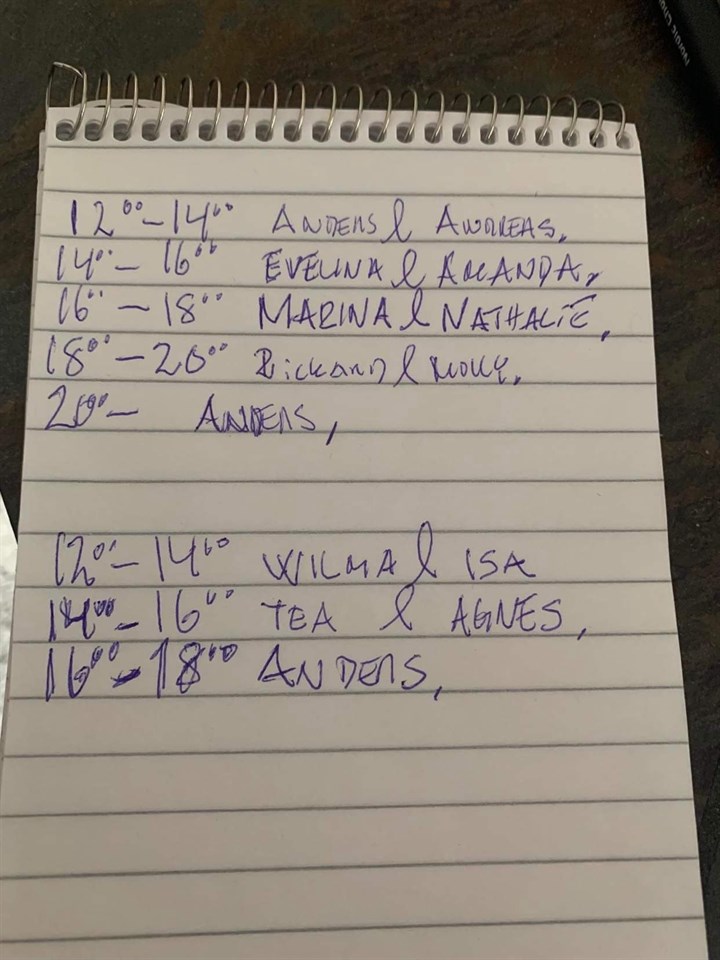 12⁰⁰-14⁰⁰ ANDERS & ANDREAS,
14⁰⁰-16⁰⁰ EVELINA & AMANDA,
16⁰⁰-18⁰⁰ MARINA & NATHALIE,
18⁰⁰-20⁰⁰ Rickard & MOLLY,
20⁰⁰- ANDERS,
12⁰⁰-14⁰⁰ WILMA & ISA
14⁰⁰-16⁰⁰ TEA & AGNES,
16⁰⁰-18⁰⁰ ANDERS,